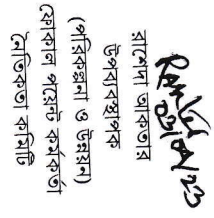 রাশেদা আকতার
উপব্যবস্থাপক
(পরিকল্পনা ও উন্নয়ন)
ফোকাল পয়েন্ট কর্মকর্তা
নৈতিকতা কমিটি